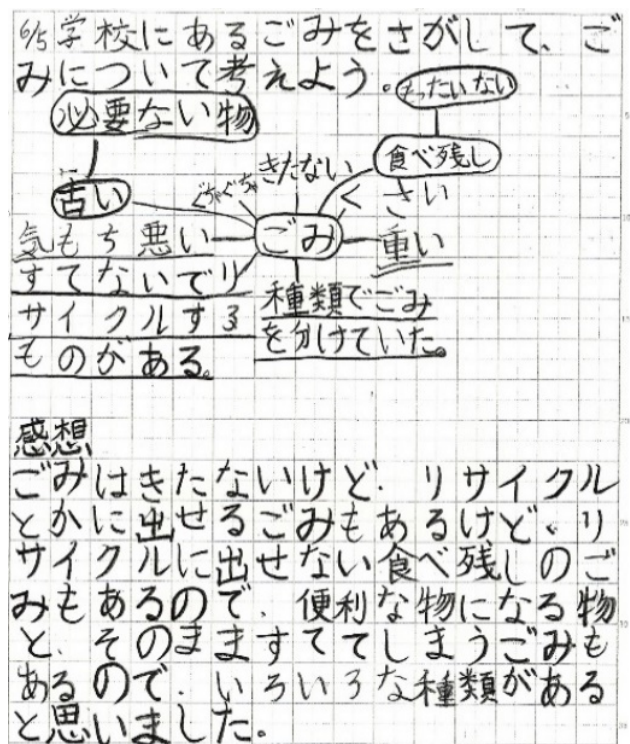 6/5 学校にあるごみをさがして、ご
みについて考えよう。
もったいない
必要ない物
食べ残し
きたない
ぐちゃぐちゃ
くさい
古い
ごみ
気もち悪い
重い
すてないでリ
サイクルする
ものがある。
種類でごみ
を分けていた。
感想
ごみはきたないけど、リサイクル
とかに出せるごみもあるけど、リ
サイクルに出せない食べ残しのご
みもあるので、便利な物になる物
と、そのまますててしまうごみも
あるので、いろいろな種類がある
と思いました。